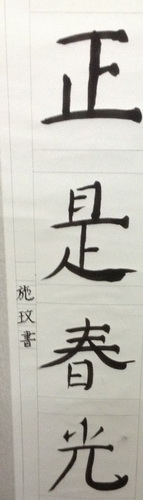 正是春光
施玟書